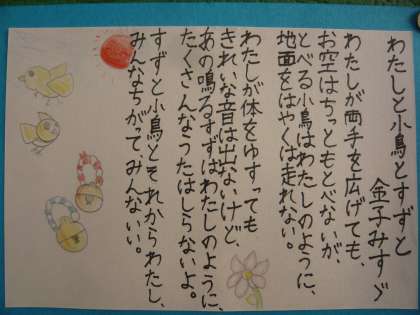 わたしと小鳥とすずと
金子みすゞ
わたしが両手を広げても、
お空はちっともとべないが、
とべる小鳥はわたしのように、
地面をはやくは走れない。
わたしが体をゆすっても
きれいな音は出ないけど、
あの鳴るすずはわたしのように、
たくさんなうたはしらないよ。
すずと小鳥とそれからわたし、
みんなちがって、みんないい。